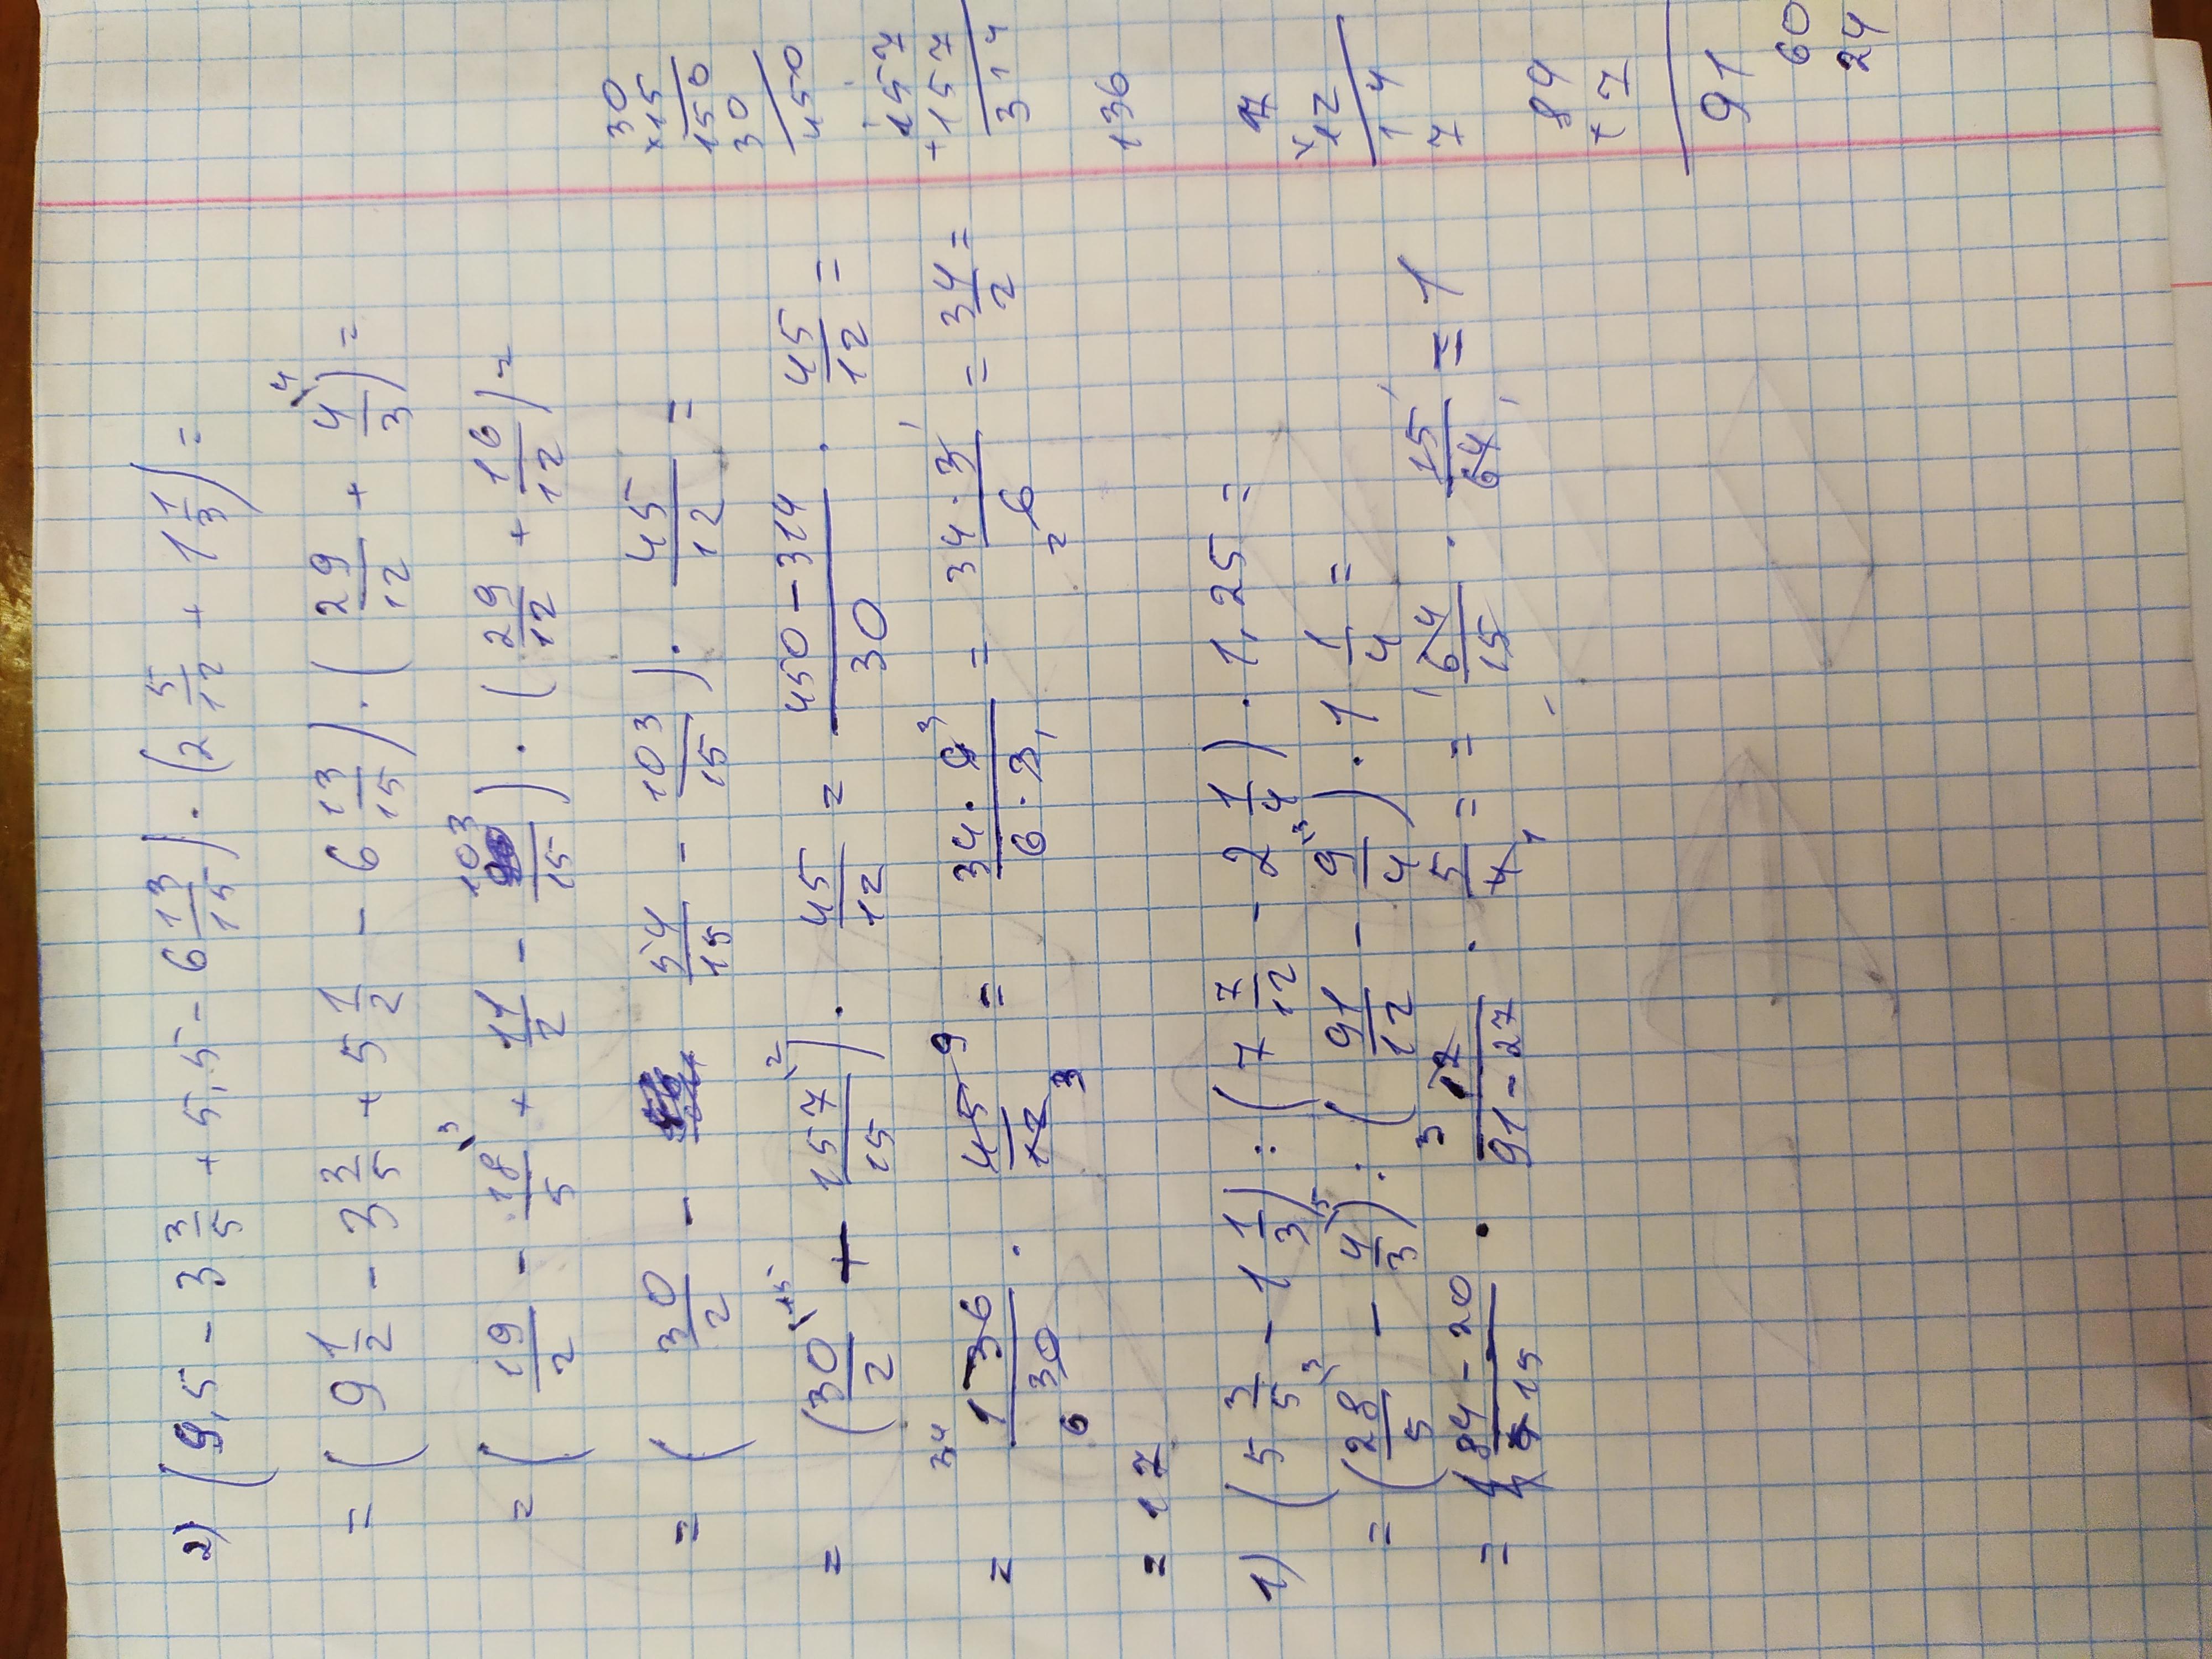 2) (9,5 - 3 3/5 + 5,5 - 6 13/15) · (2 5/12 + 1 1/3) =
= (9 1/2 - 3 3/5 + 5 1/2 - 6 13/15) · (29/12 + 4/3 \4) =
= (19/2 - 18/5 \3 + 11/2 - 103/15) · (29/12 + 16/12) =
= (30/2 - 54/15 - 103/15) · 45/12 =
= (30/2 \15 + 157/15 \2) · 45/12 = 450-314/30 · 45/12 =
= 34 136/30 6 · 45 9/12 3 = 34·9 3/6·3 1 = 34·3/2 6 = 34/2 =
= 17
1) (5 3/5 - 1 1/3) : (7 7/12 - 2 1/4) · 1,25 =
= (28/5 \3 - 4/3 \5) : (91/12 - 9/4 \3) · 1 1/4 =
= 84-20/15 · 3 12/91-27 · 5/4 1 = = 64/15 · 15/64 = 1
30
×15
150
30
450
157
+157
314
136
7
×12
14
7
84
+7
91
60
24